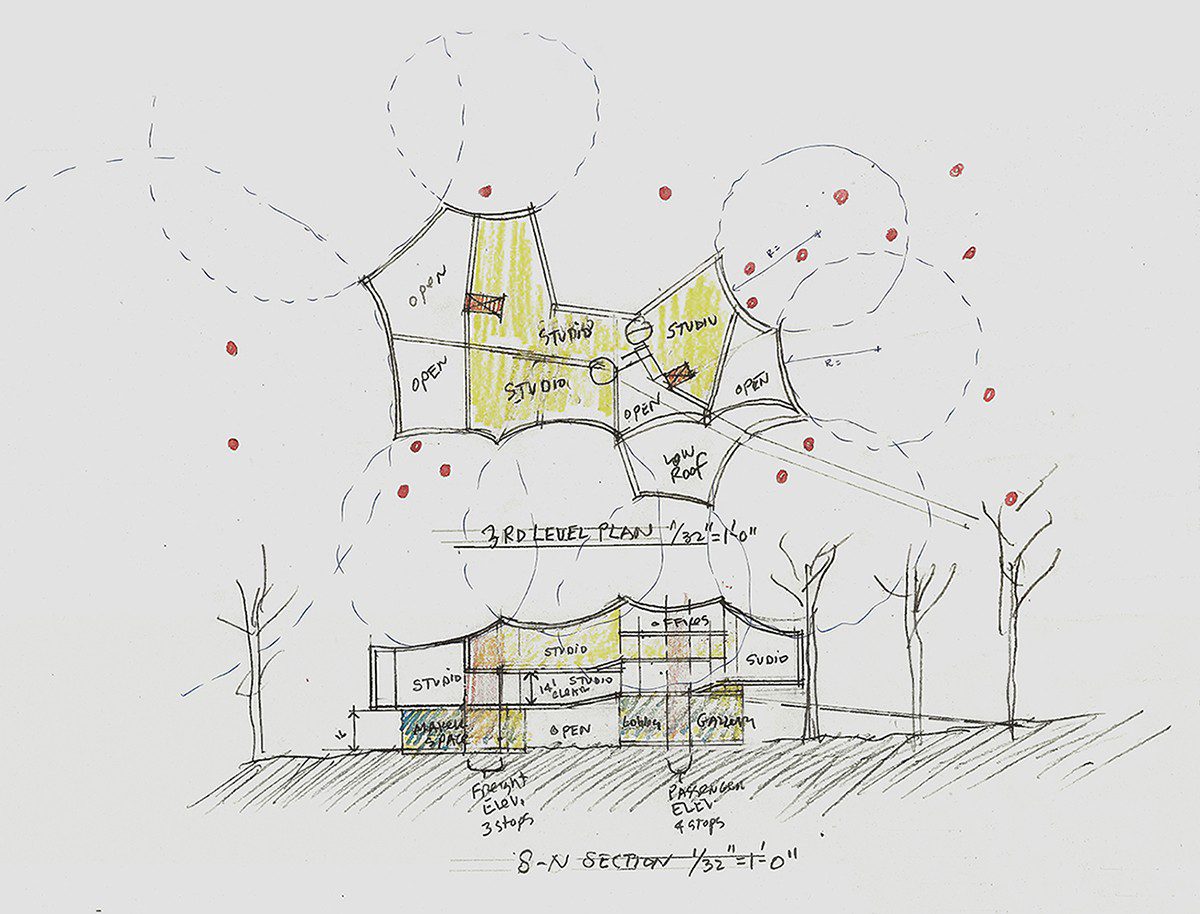 open
OPEN
STUDIO
STUDIO
STUDIO
OPEN
OPEN
LOW
ROOF
R=
R=
3RD LEVEL PLAN 1/32"=1'-0"
OFFICES
STUDIO
SUDIO
STUDIO
14' STUDIO
CLEAR
MAKER
SPACE
OPEN
LOBBY
GALLERY
Freight
ELEV.
3 stops
PASSENGER
ELEV
4 stops
S-N SECTION 1/32"=1'-0"